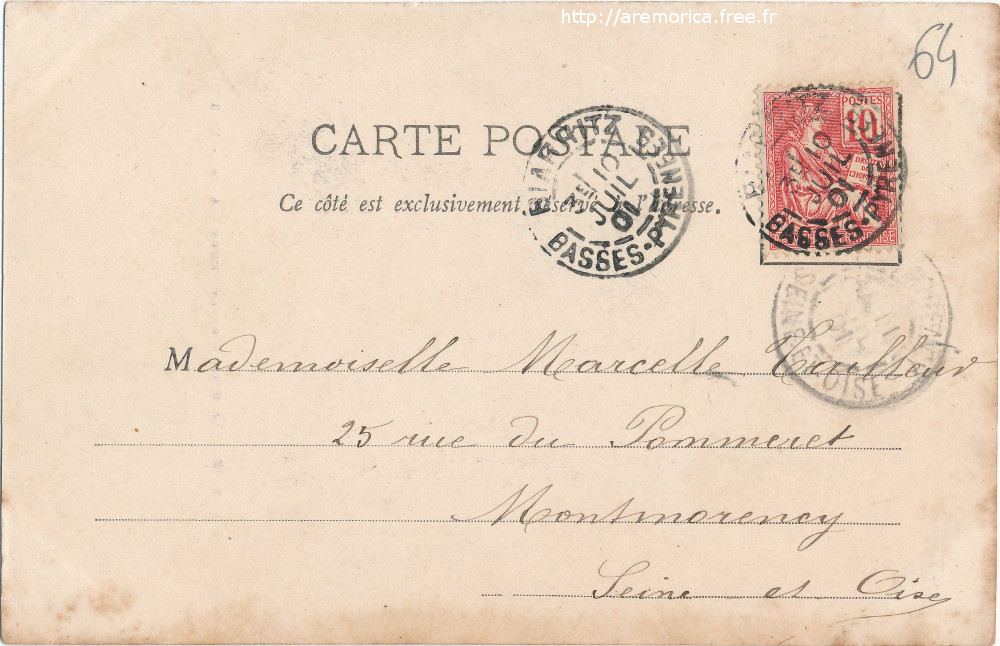 http://aremorica.free.fr
64
POSTES
10
DROITS
DE
L'HOMME
CARTE POSTALE
Ce côté est exclusivement réservé à l'adresse.
BIARRITZ
10
JUIL
01
BASSES-PYRENÉES
BIARRITZ
10
JUIL
01
BASSES-PYRENÉES
SEINE-ET-OISE
Mademoiselle Marcelle Tailleur
25 rue du Pommeret
Montmorency
Seine et Oise